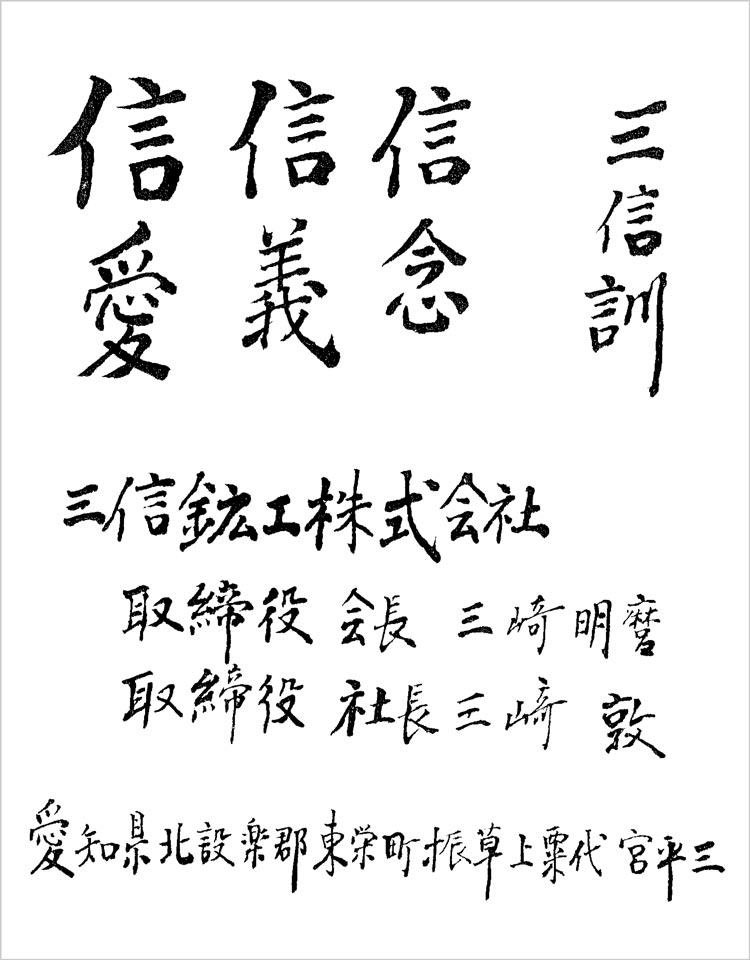 三信訓
信念
信義
信愛
三信鉱工株式会社
取締役 会長 三崎明麿
取締役 社長 三崎 敦
愛知県北設楽郡東栄町振草上粟代宮平三